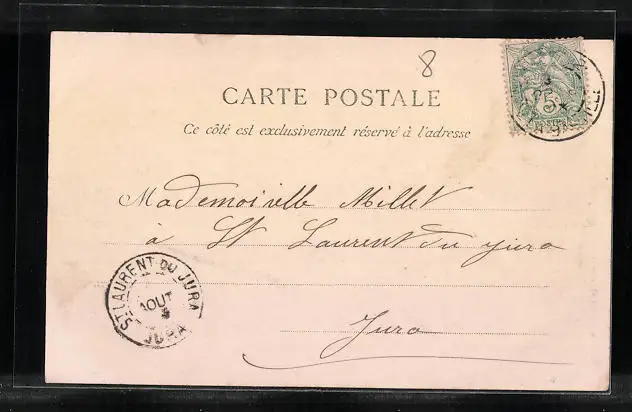 8
5
CARTE POSTALE
Ce côté est exclusivement réservé à l'adresse
Mademoiselle Millet
à St Laurent du jura
Jura
ST LAURENT-DU-JURA
AOUT
JURA